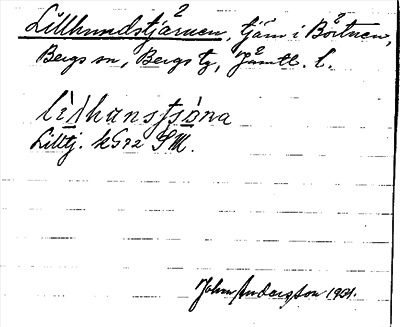 Lillhundstjärnen, tjärn i Börtnen,
Bergs sn, Bergs tg, Jämtl. l.
Lilltj. k572 SM.
John Andersson 1931.